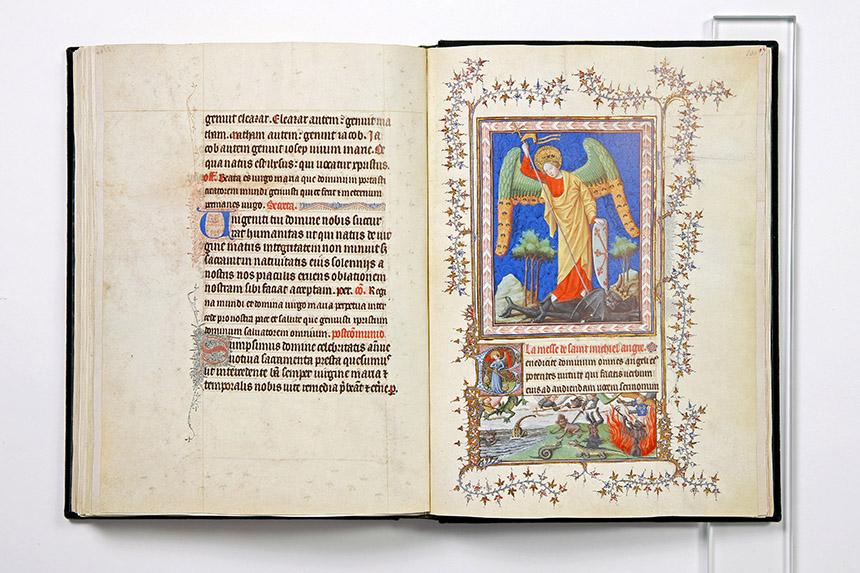 genuit eleazar. Eleazar autem genuit ma
than. Mathan autem genuit iacob. Ja
cob autem genuit ioseph uirum marie. De
qua natus est ihesus: qui uocatur xpistus.
off. Beata es uirgo maria que dominum portasti
creatorem mundi genuisti qui te fecit & in eternum
permanes uirgo. Secreta.
Unigeniti tui domine nobis succur
rat humanitas ut qui natus de uir
gine matris integritatem non minuit s;
sacrauit in natiuitatis eius solennis a
nostris nos piaculis exuens oblationem
nostram sibi faciat acceptam. per. co. Regi
na mundi et domina uirgo maria perpetua inter
cede pro nostra pace et salute que genuisti xpristum
dominum saluatorem omnium. postcomunio.
Sumpsimus domine celebritatis annue
uotiua sacramenta presta quesumus
ut intercedente bta semper uirgine maria &
temporalis nobis uite remedia pbeant & eterne p.
La messe de saint michiel angre.
Benedicite dominum omnes angeli eius
potentes uirtute qui facitis uerbum
eius ad audiendam uocem sermonum